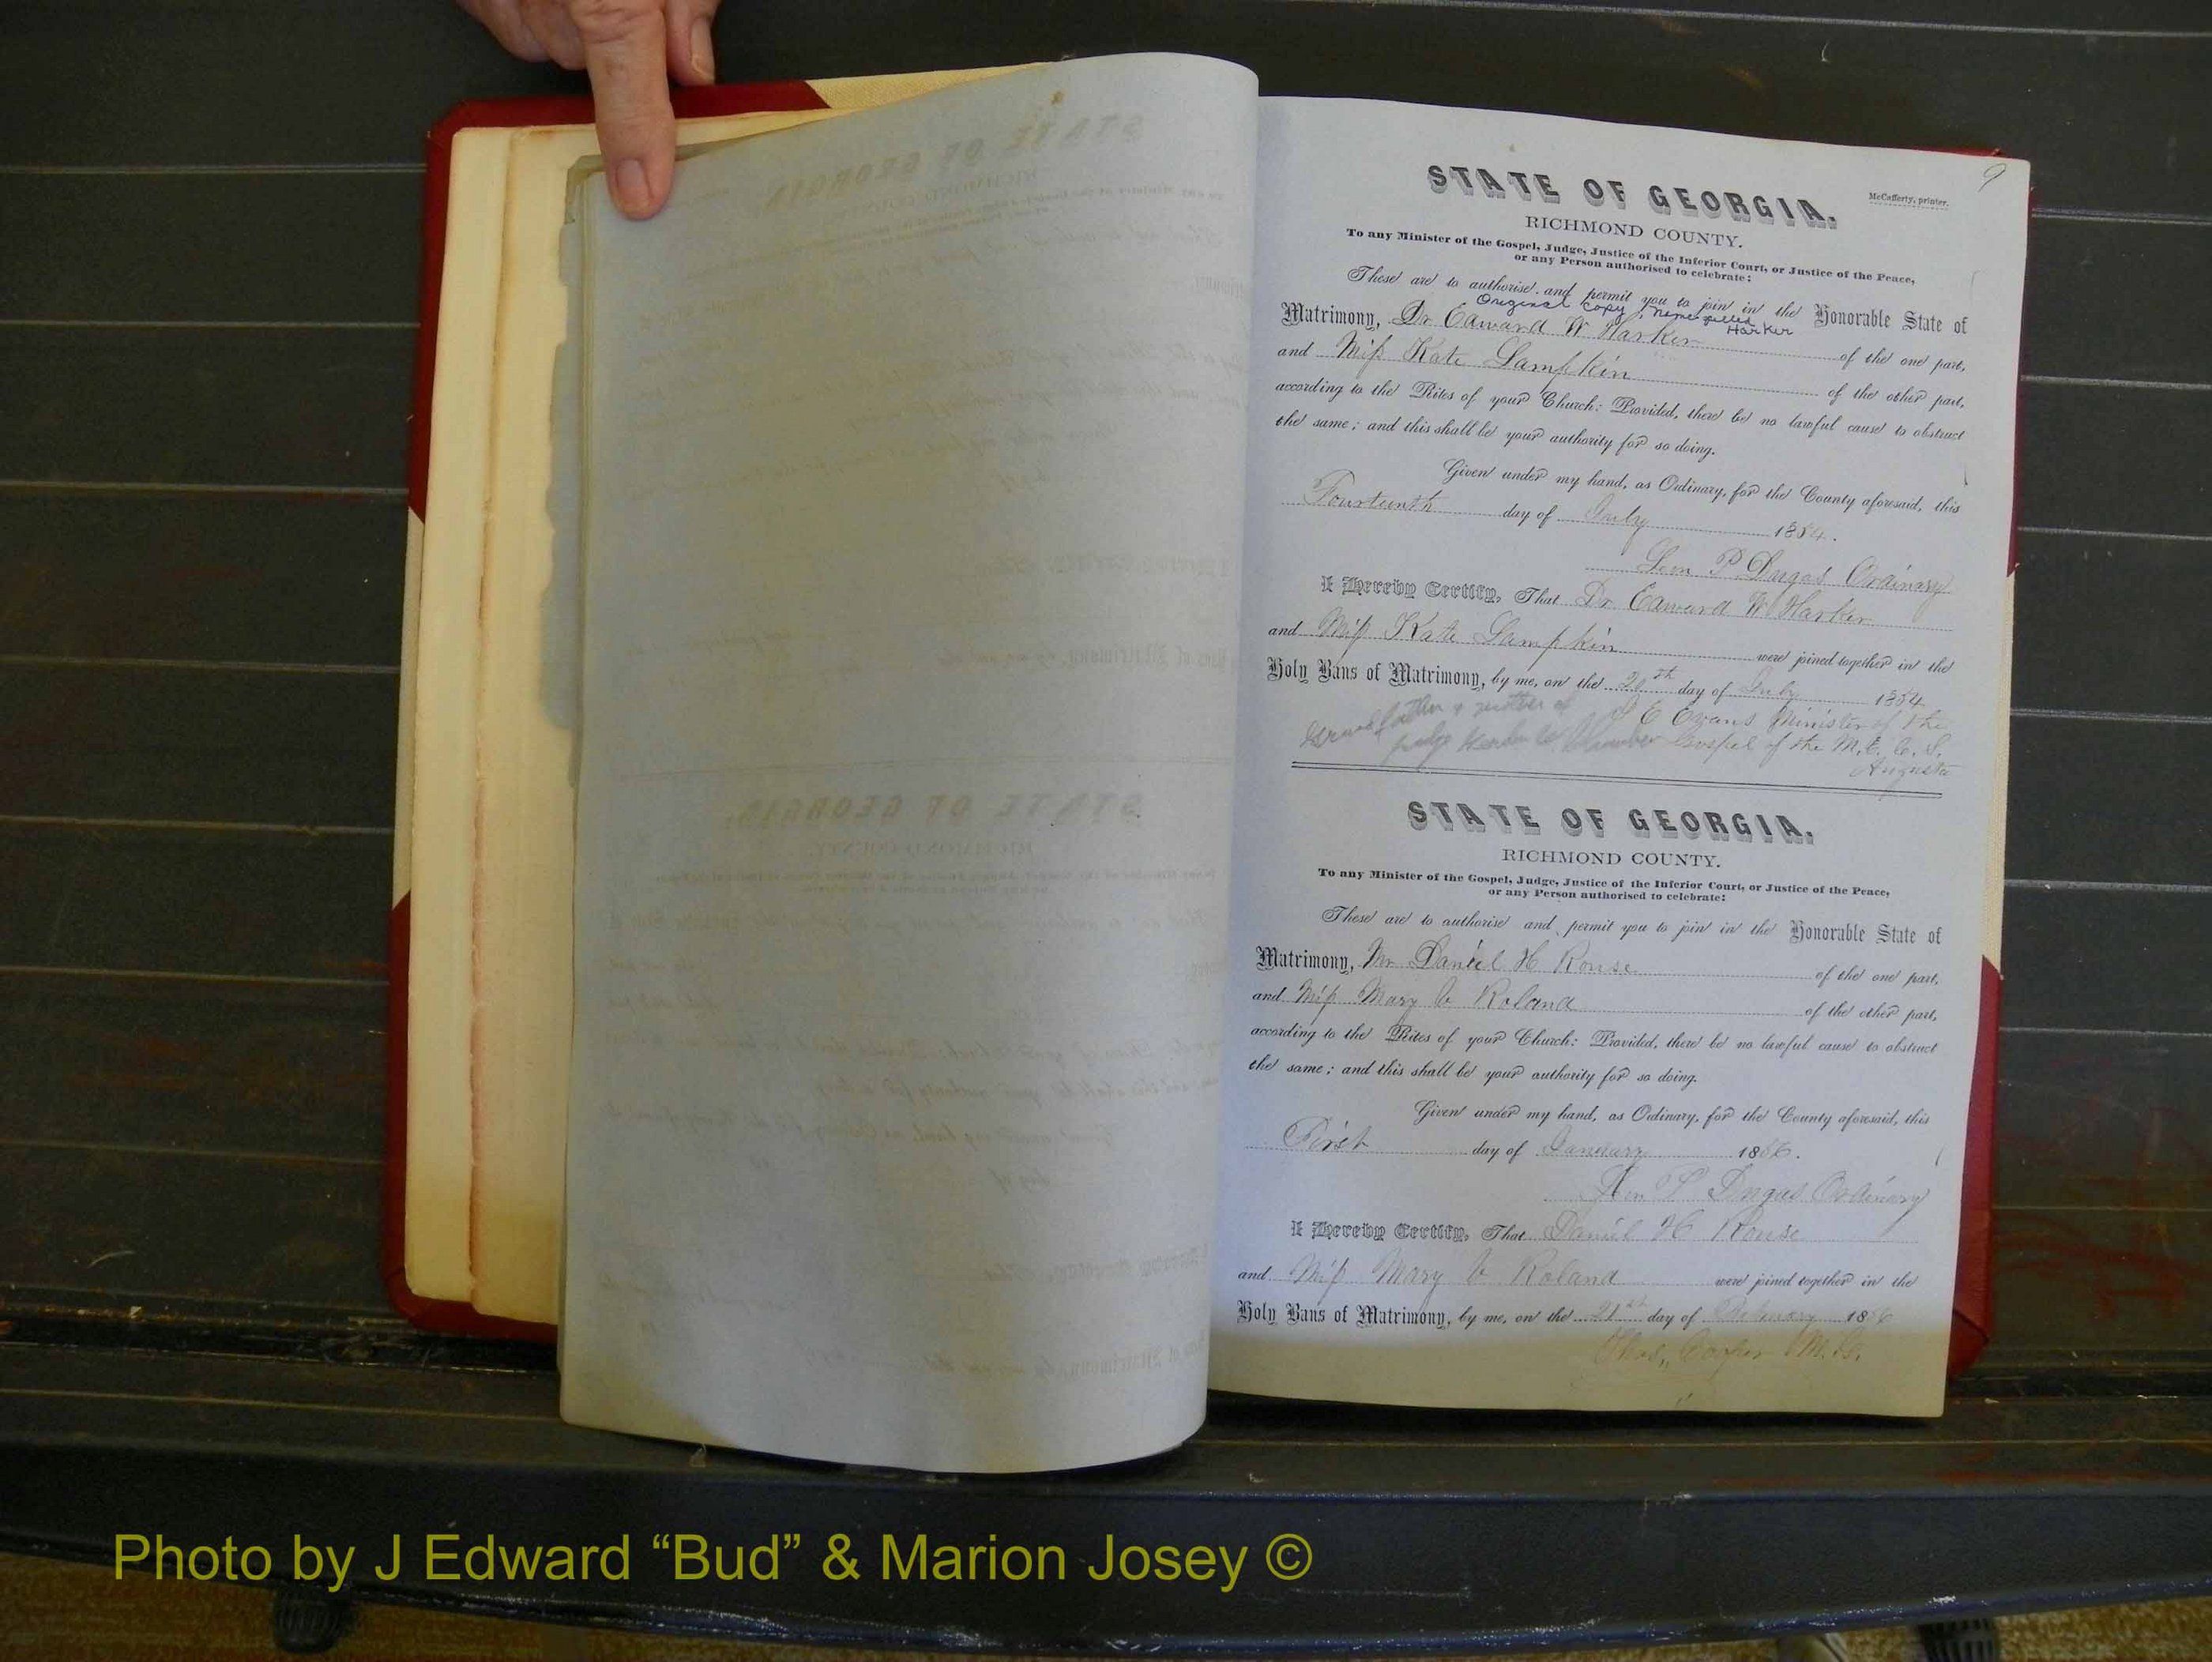 9
STATE OF GEORGIA.
McCafferty, printer.
RICHMOND COUNTY.
To any Minister of the Gospel, Judge, Justice of the Inferior Court, or Justice of the Peace,
or any Person authorised to celebrate:
These are to authorise and permit you to join in the Honorable State of
Original Copy, name spelled
Harker
Matrimony, Dr Edward W Harker of the one part,
and Miss Kate Lampkin of the other part,
according to the Rites of your Church: Provided, there be no lawful cause to obstruct
the same; and this shall be your authority for so doing.
Given under my hand, as Ordinary, for the County aforesaid, this
Fourteenth day of July 1854.
Leon P Dugas Ordinary
I Hereby Certify, That Dr Edward W Harker
and Miss Kate Lampkin were joined together in the
Holy Bans of Matrimony, by me, on the 20th day of July 1854
Grandfather & mother of
Judge
E Evans Minister of the
Gospel of the M. E. C. S.
Augusta
STATE OF GEORGIA.
RICHMOND COUNTY.
To any Minister of the Gospel, Judge, Justice of the Inferior Court, or Justice of the Peace,
or any Person authorised to celebrate:
These are to authorise and permit you to join in the Honorable State of
Matrimony, Mr Daniel H Rouse of the one part,
and Miss Mary V Roland of the other part,
according to the Rites of your Church: Provided, there be no lawful cause to obstruct
the same; and this shall be your authority for so doing.
Given under my hand, as Ordinary, for the County aforesaid, this
First day of January 1856.
Leon P Dugas Ordinary
I Hereby Certify, That Daniel H Rouse
and Miss Mary V Roland were joined together in the
Holy Bans of Matrimony, by me, on the 21st day of February 1856
Thos,, M. G.
Photo by J Edward “Bud” & Marion Josey ©